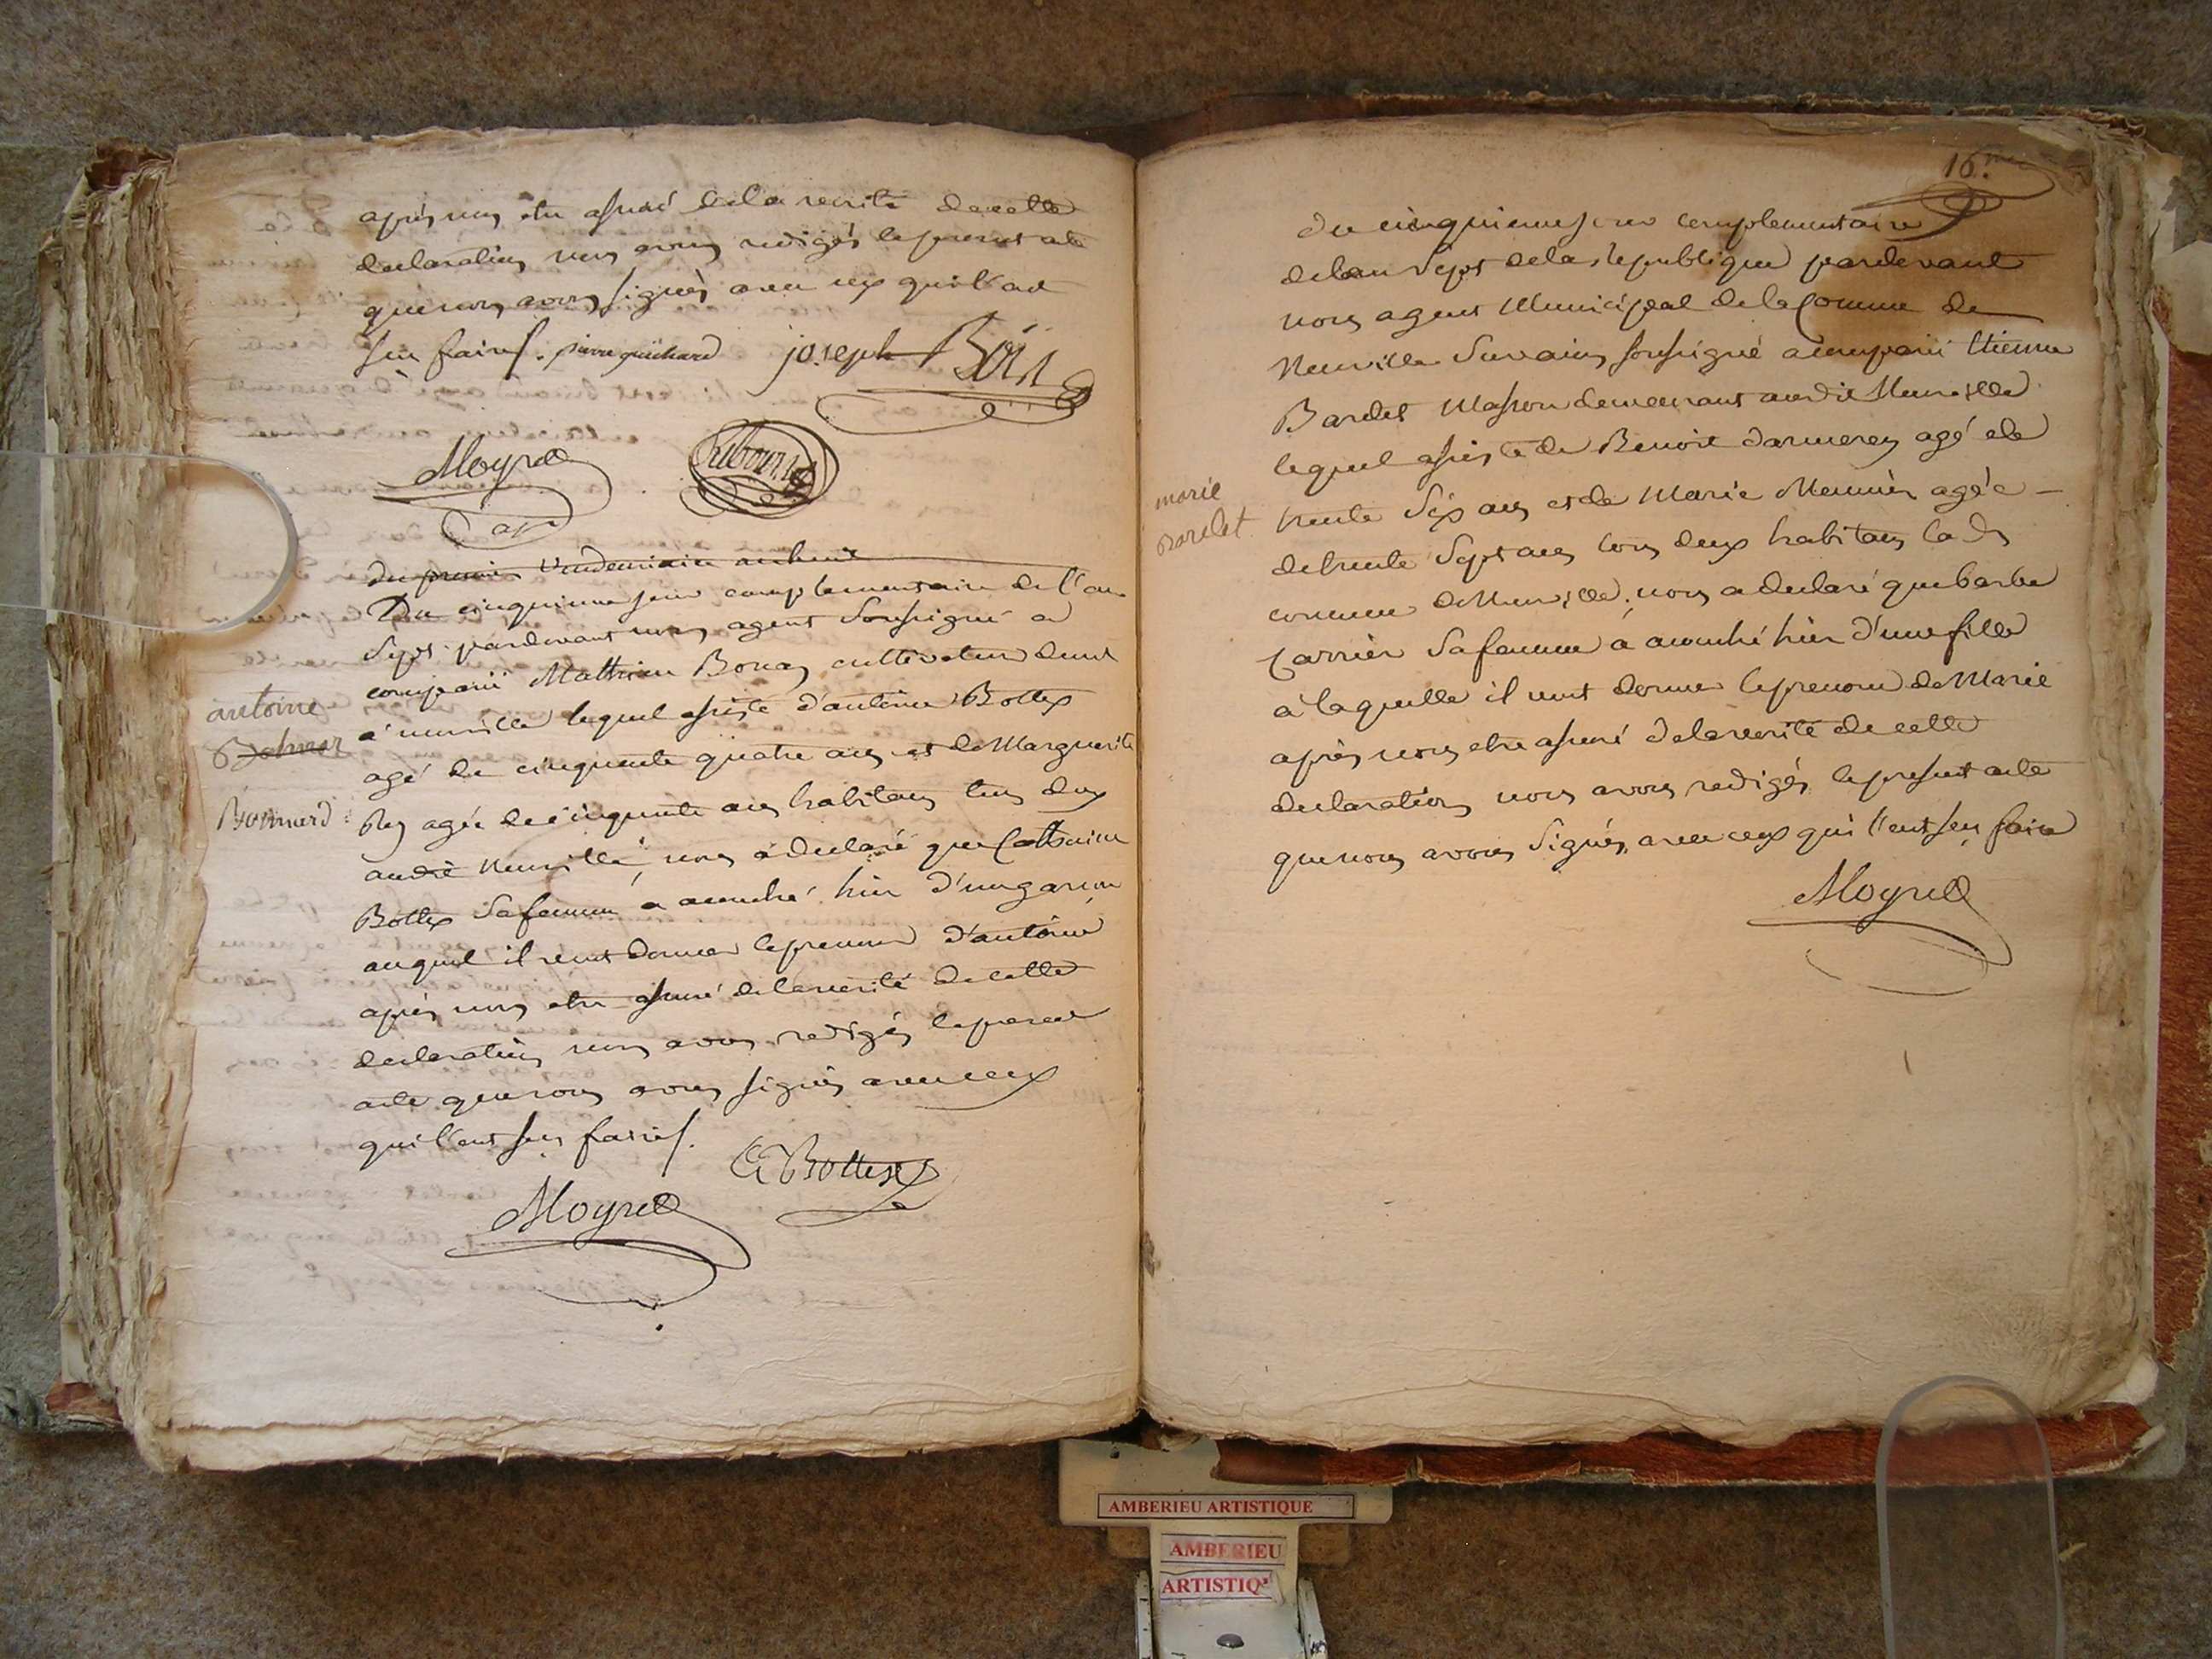 après nous etre assuré de la verité de cette
declaration nous avons redigés le present acte
que nous avons signés avec ceux qui l'ont
sçu faire. pierre guichard joseph
Moyret
ap
du premier vendemiaire an huit
Du cinquieme jour complementaire de l'an
sept pardevant nous agent soussigné a
comparu Mathieu cultivateur demt
à neuville lequel assisté d'antoine Bottex
agé de cinquante quatre ans et de Marguerite
Rey agée de cinquante ans habitans tous deux
audit neuville, nous a declaré que Catherine
Bottex sa femme a accouché hier d'un garçon
auquel il veut donner le prenom d'antoine
après nous etre assuré de la verité de cette
declaration nous avons redigés le present
acte que nous avons signés avec ceux
qui l'ont sçu faire.
Bottex
Moyret
antoine
Bonnard
16.
du cinquieme jour complementaire
de l'an sept de la republique pardevant
nous agent municipal de la comune de
Neuville sur ain soussigné a comparu Etienne
Bardet masson demeurant audit Neuville
lequel assisté de Benoit darmerey agé de
trente six ans et de Marie Meunier agée
de trente sept ans tous deux habitans lad
comune de Neuville, nous a declaré que barbe
Carrier sa femme a accouché hier d'une fille
à laquelle il veut donner le prenom de Marie
après nous etre assuré de la verité de cette
declaration nous avons redigés le present acte
que nous avons signés, avec ceux qui l'ont sçu faire
Moyret
marie
bardet
AMBERIEU ARTISTIQUE
AMBERIEU
ARTISTIQ